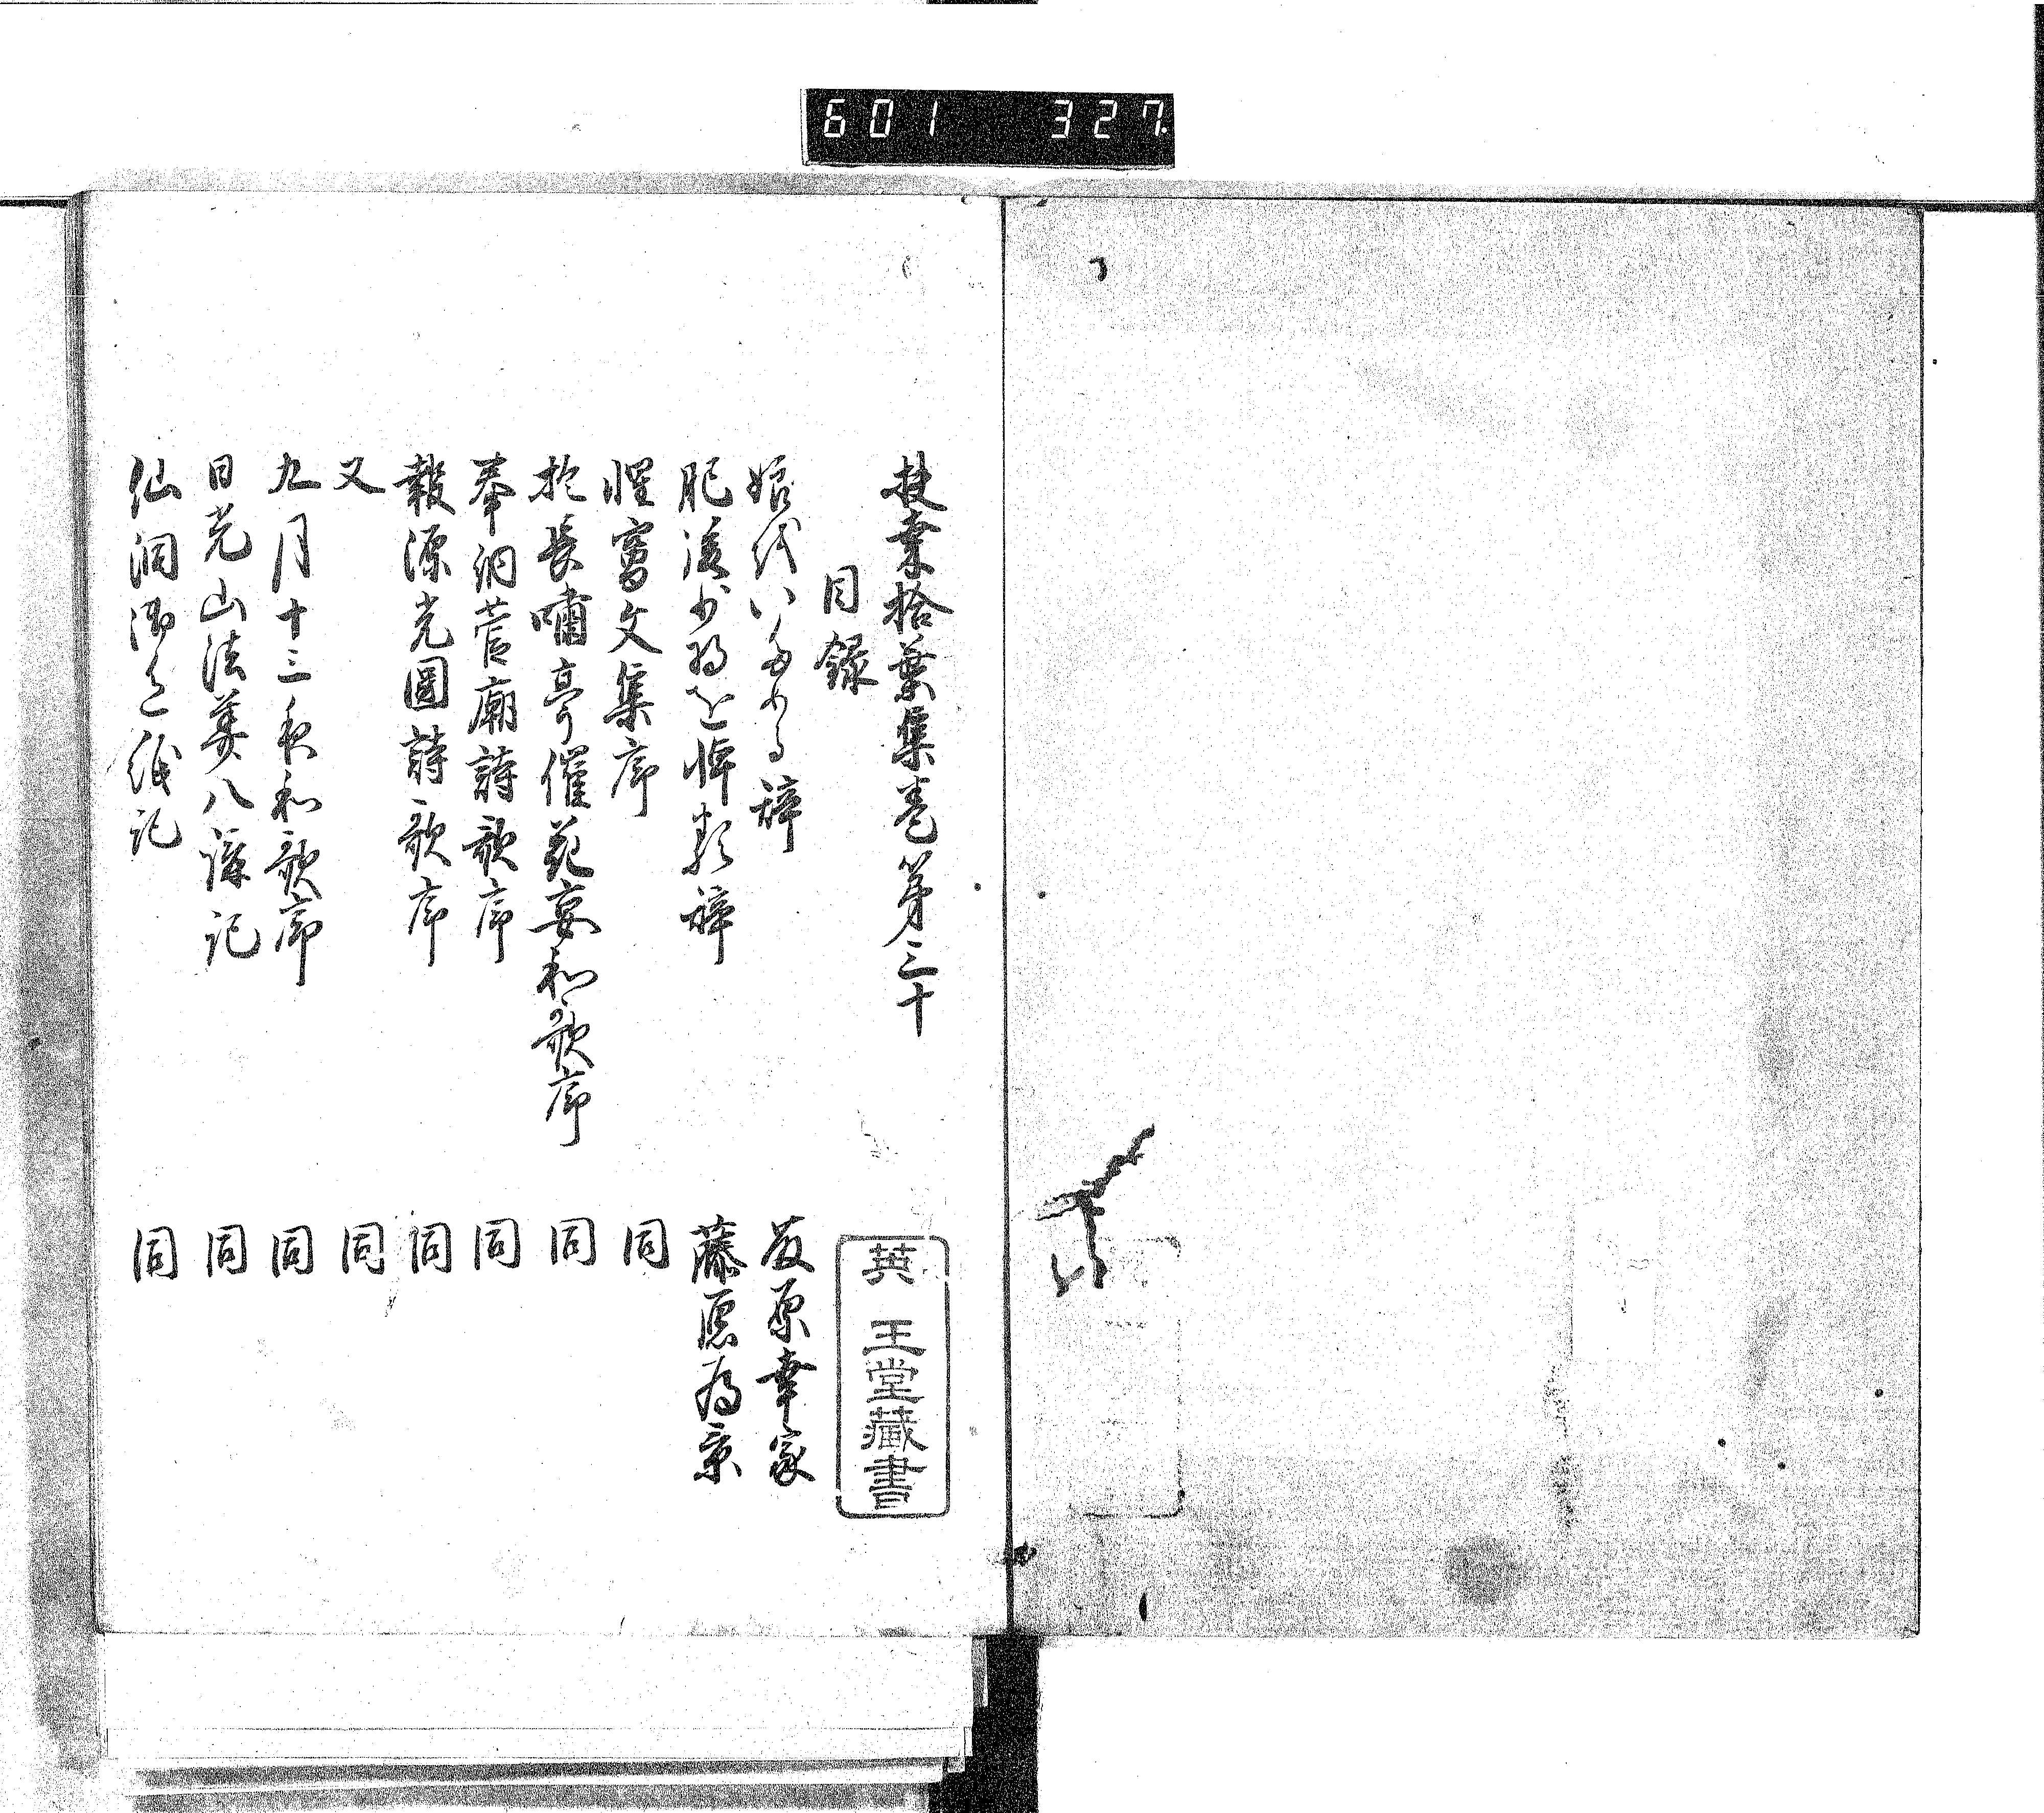 601 327
扶桑拾葉集巻第三十
目録
娘代いためる辞 藤原幸家
肥後少将を悼歎辞 藤原為景
惺窩文集序 同
於長嘯亭催花宴和歌序 同
奉納菅廟詩歌序 同
報源光圀詩歌序 同
又 同
九月十三夜和歌序 同
日光山法華八講記 同
仙洞御色紙記 同
英王堂蔵書